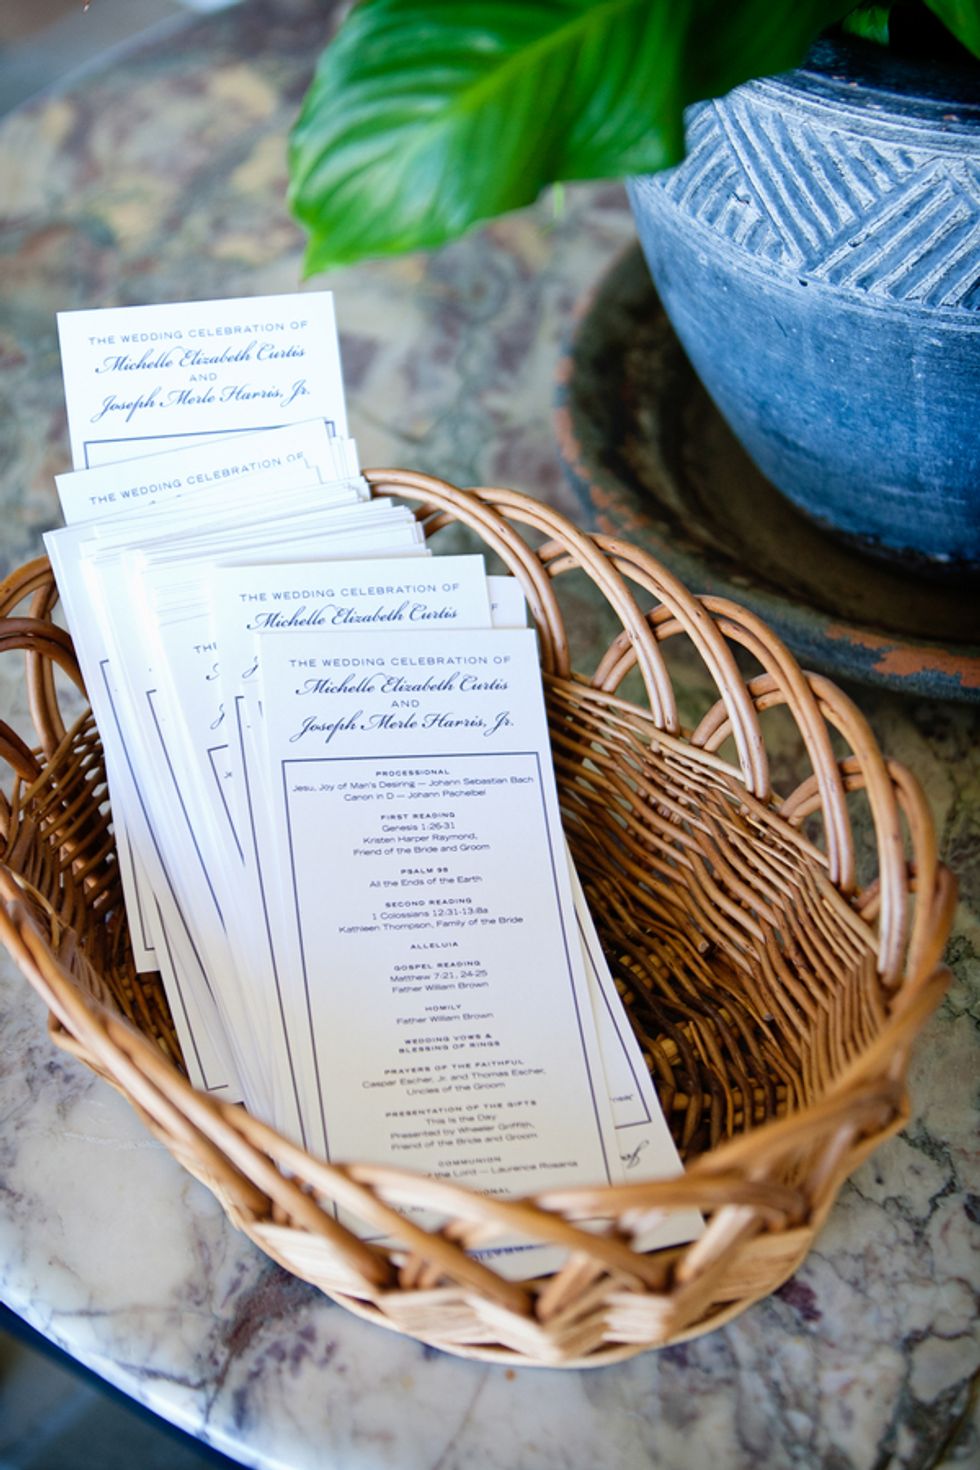 THE WEDDING CELEBRATION OF
Michelle Elizabeth Curtis
AND
Joseph Merle Harris, Jr.
THE WEDDING CELEBRATION OF
THE WEDDING CELEBRATION OF
Michelle Elizabeth Curtis
THE WEDDING CELEBRATION OF
Michelle Elizabeth Curtis
AND
Joseph Merle Harris, Jr.
PROCESSIONAL
Jesu, Joy of Man's Desiring — Johann Sebastian Bach
Canon in D — Johann Pachelbel
FIRST READING
Genesis 1:26-31
Kristen Harper Raymond,
Friend of the Bride and Groom
PSALM 98
All the Ends of the Earth
SECOND READING
1 Colossians 12:31-13:8a
Kathleen Thompson, Family of the Bride
ALLELUIA
GOSPEL READING
Matthew 7:21, 24-25
Father William Brown
HOMILY
Father William Brown
WEDDING VOWS &
BLESSING OF RINGS
PRAYERS OF THE FAITHFUL
Caspar Escher, Jr. and Thomas Escher,
Uncles of the Groom
PRESENTATION OF THE GIFTS
This is the Day
Presented by Wheeler Griffith,
Friend of the Bride and Groom
COMMUNION
of the Lord — Laurence Rosania